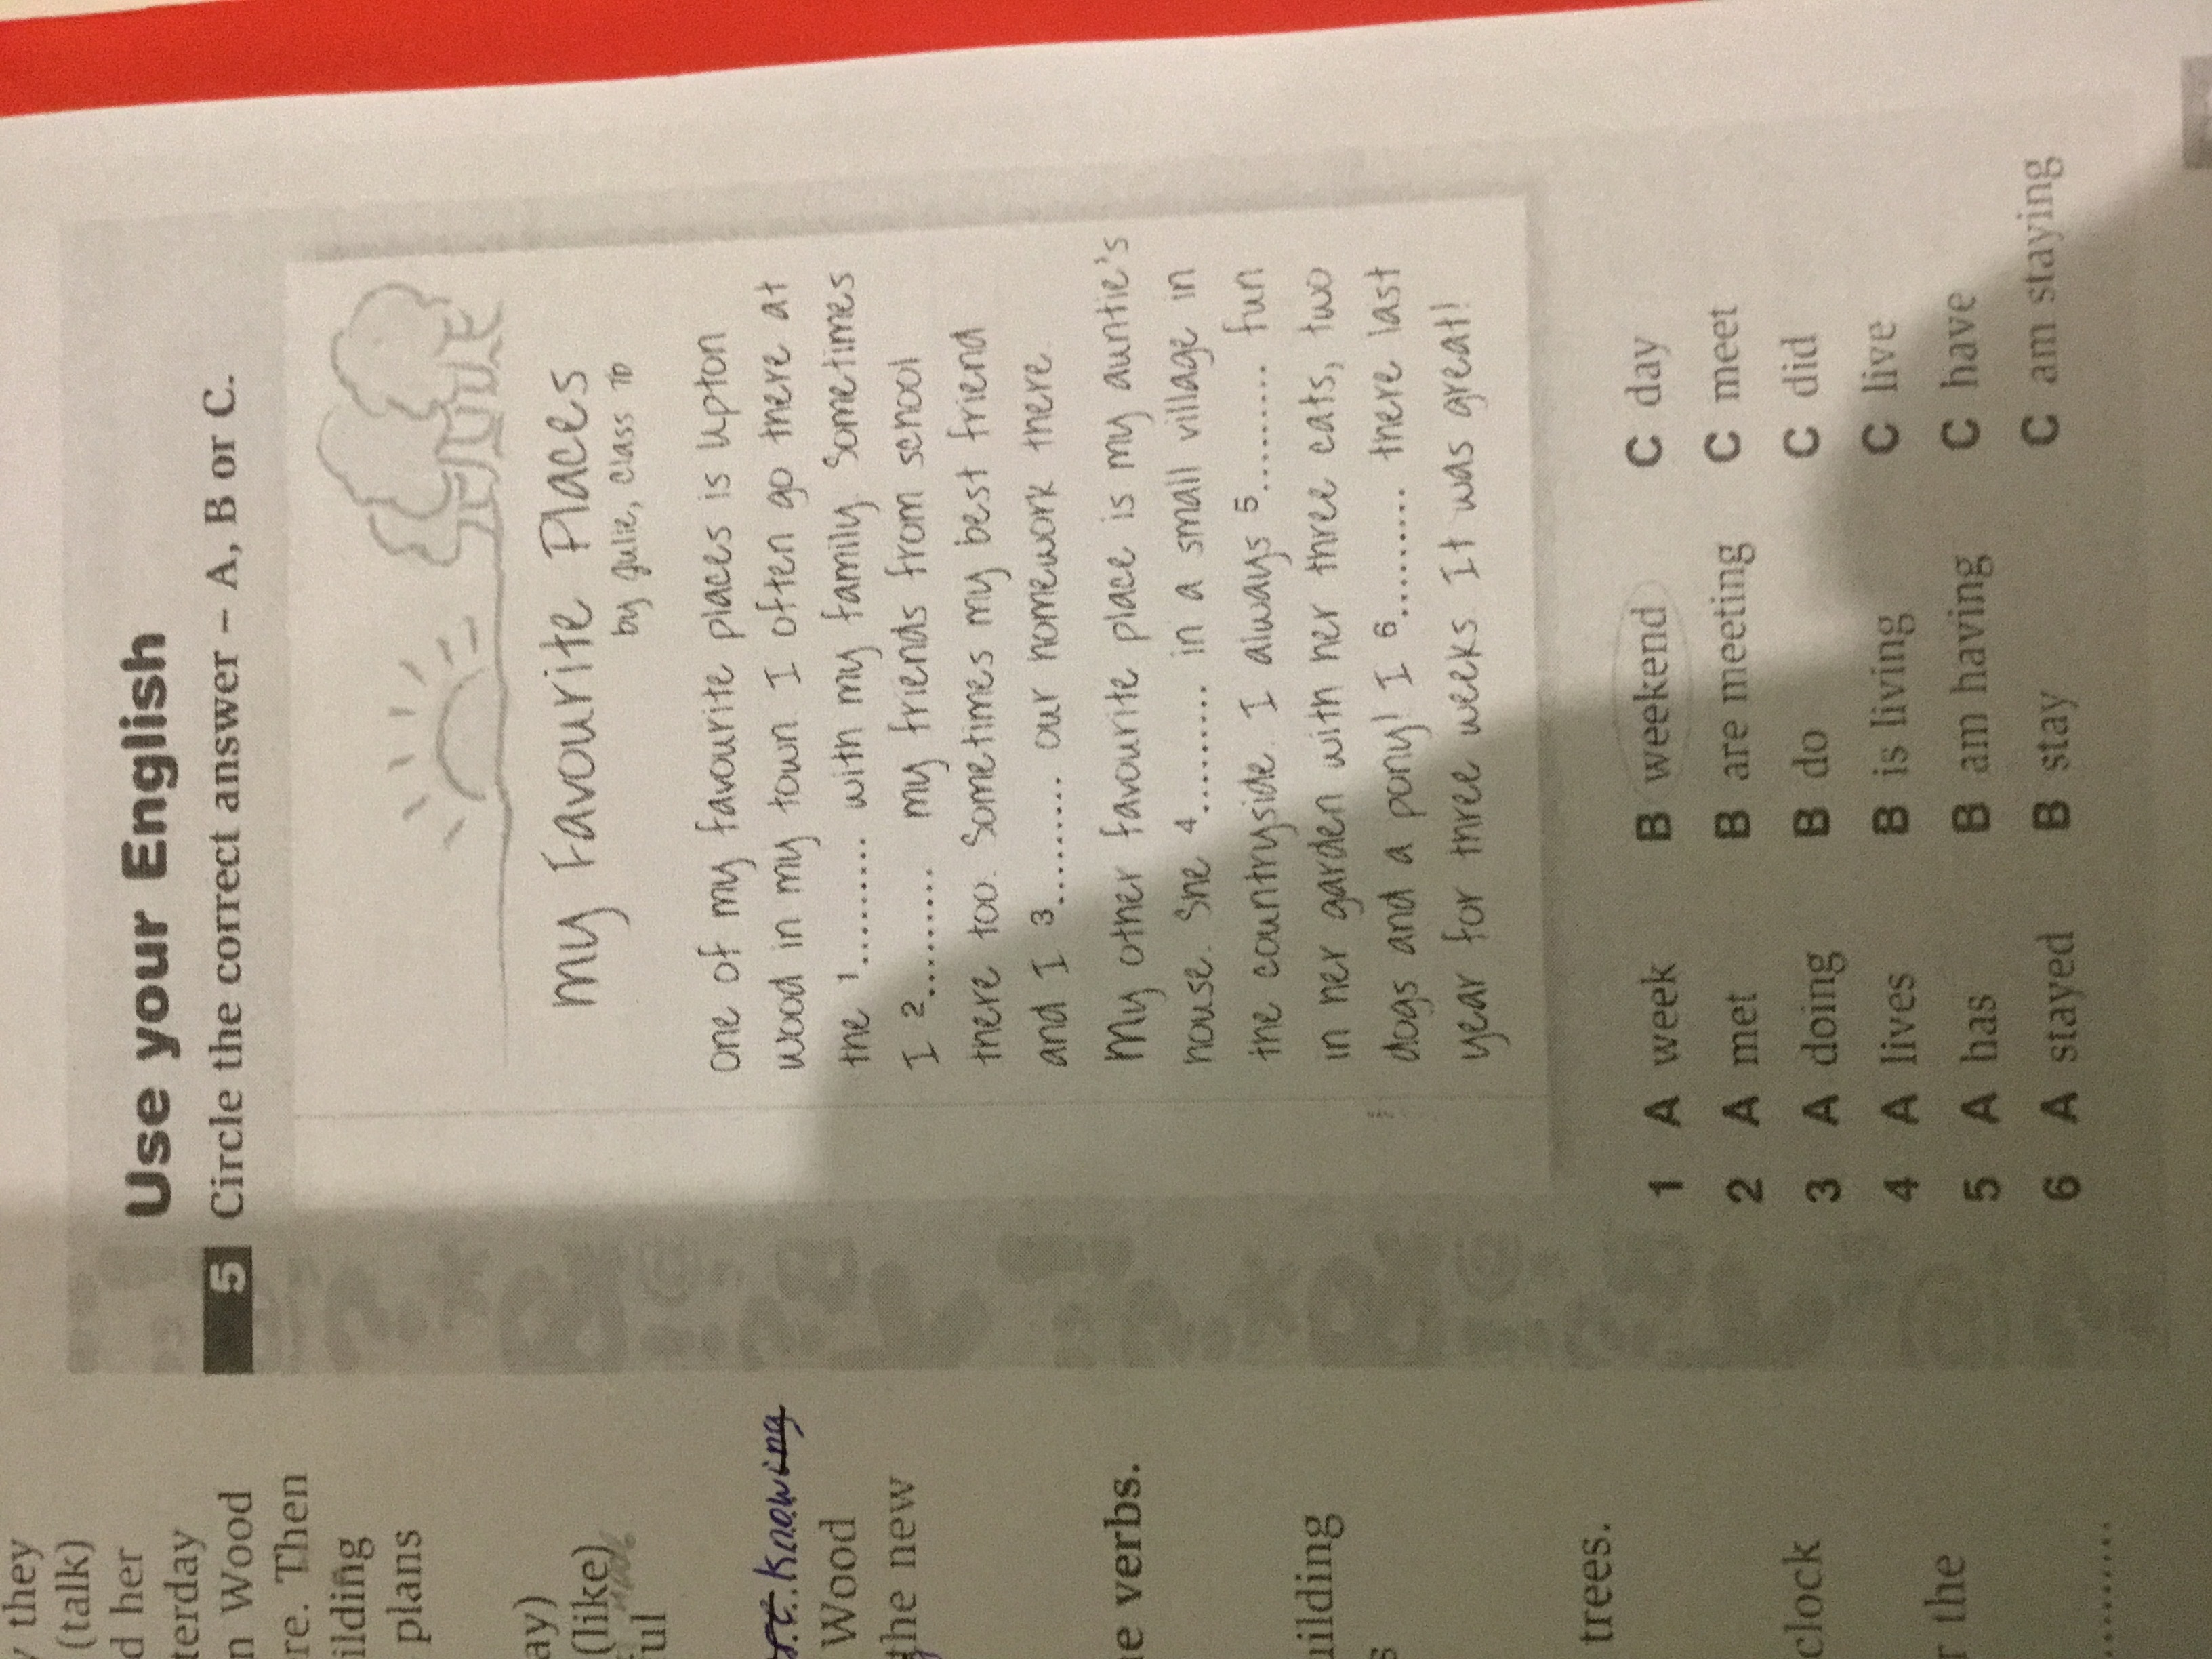 Use your English
5 Circle the correct answer – A, B or C.
My Favourite Places
by Julie, Class 7D
One of my favourite places is Upton
Wood in my town. I often go there at
the 1.......... with my family. Sometimes
I 2.......... my friends from school
there too. Sometimes my best friend
and I 3.......... our homework there.
My other favourite place is my auntie's
house. She 4.......... in a small village in
the countryside. I always 5.......... fun
in her garden with her three cats, two
dogs and a pony! I 6.......... there last
year for three weeks. It was great!
1 A week B weekend C day
2 A met B are meeting C meet
3 A doing B do C did
4 A lives B is living C live
5 A has B am having C have
6 A stayed B stay C am staying
they
(talk)
d her
terday
n Wood
re. Then
ilding
plans
ay)
(like)
ul
knowing
Wood
the new
e verbs.
uilding
s
trees.
clock
r the
..........